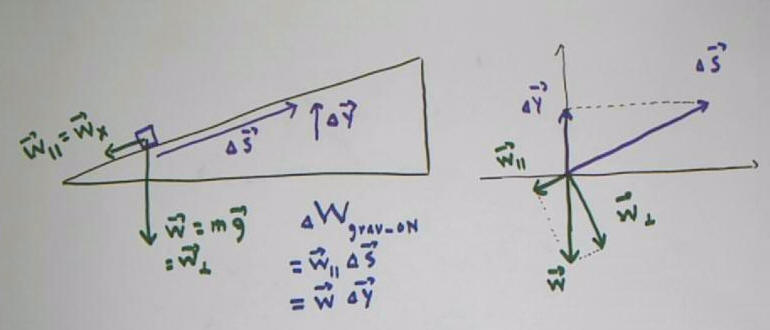 W⃗∥ = W⃗x
ΔS⃗
ΔY⃗
W⃗ = m g⃗
= W⃗⊥
ΔW grav-ON
= W⃗∥ ΔS⃗
= W⃗ ΔY⃗
ΔS⃗
ΔY⃗
W⃗∥
W⃗⊥
W⃗